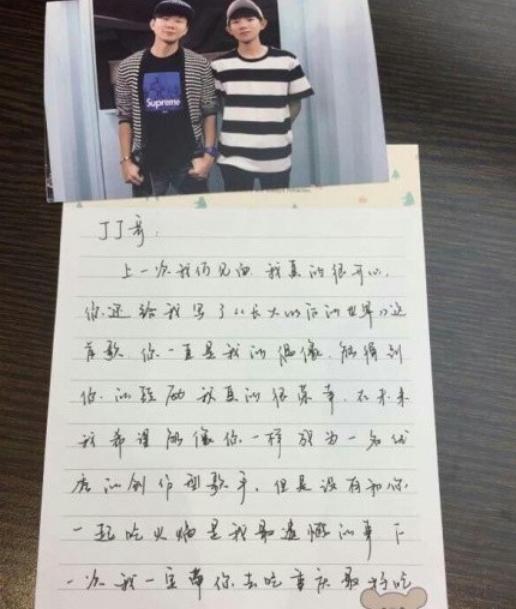 Supreme
丁丁哥:
上一次我们见面我真的很开心,
你还给我写了《长大以后的世界》这
首歌,你一直是我的偶像,能得到
你的鼓励我真的很荣幸,在未来
我希望能像你一样成为一名优
秀的创作型歌手,但是没有和你
一起吃火锅是我最遗憾的事,下
一次我一定带你去吃重庆最好吃